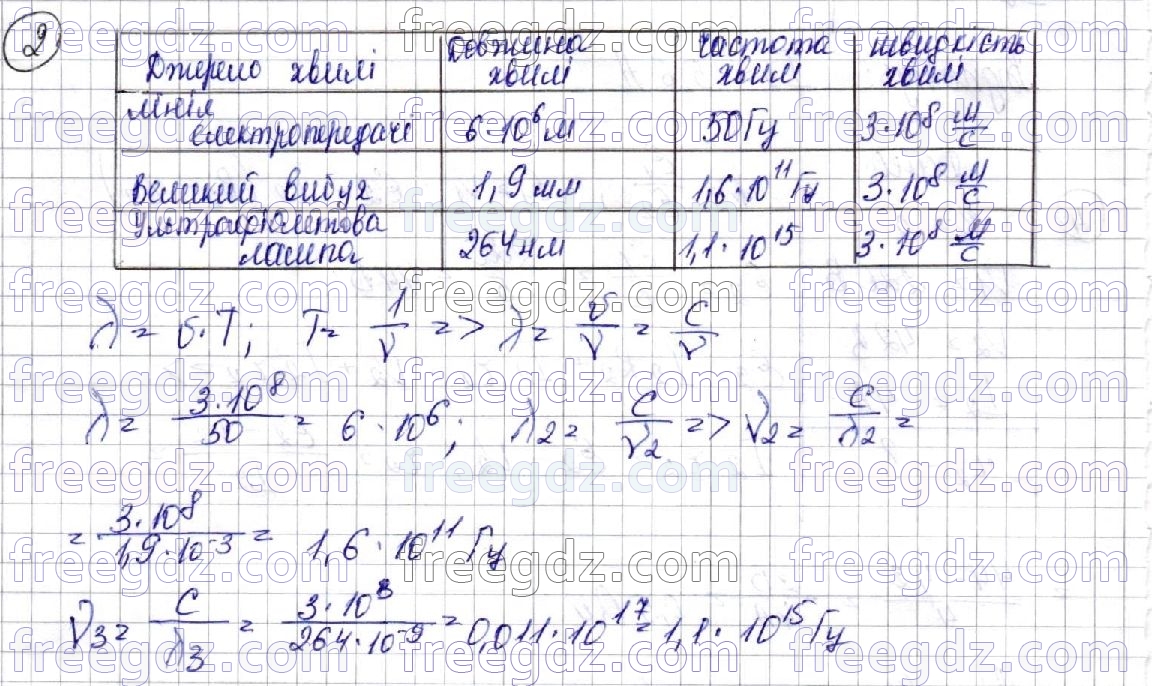 2
Джерело хвилі | Довжина хвилі | Частота хвилі | Швидкість хвилі
Лінія електропередачі | 6·10⁶ м | 50 Гц | 3·10⁸ м/с
Великий вибух | 1,9 мм | 1,6·10¹¹ Гц | 3·10⁸ м/с
Ультрафіолетова лампа | 264 нм | 1,1·10¹⁵ | 3·10⁸ м/с
λ = υ·T; T = 1/ν => λ = υ/ν = c/ν
λ = 3·10⁸/50 = 6·10⁶; λ₂ = c/ν₂ => ν₂ = c/λ₂ =
= 3·10⁸/1,9·10⁻³ = 1,6·10¹¹ Гц
ν₃ = c/λ₃ = 3·10⁸/264·10⁻⁹ = 0,011·10¹⁷ = 1,1·10¹⁵ Гц
freegdz.com